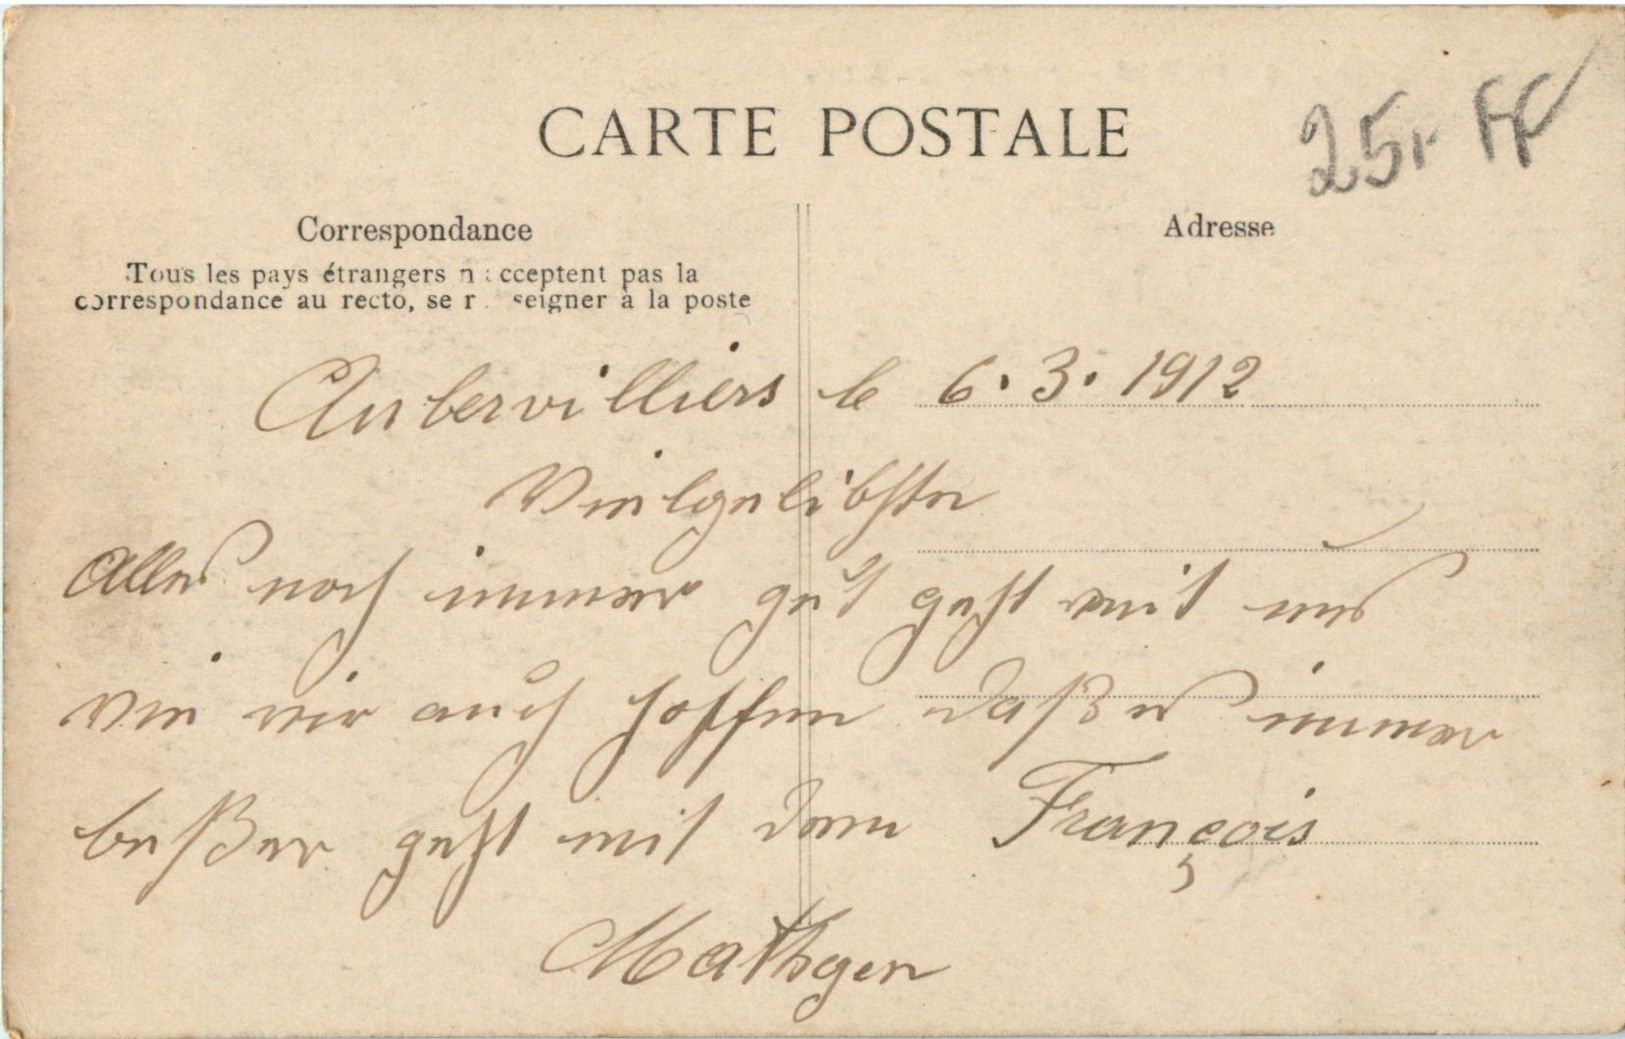 CARTE POSTALE
25 FF
Correspondance
Adresse
Tous les pays étrangers n'acceptent pas la
correspondance au recto, se renseigner à la poste
Aubervilliers le 6.3.1912
Vielgelibste
Alles noch immer gut geht mit uns
wie wir auch hoffen daß es immer
beßer geht mit dem François
Mathgen